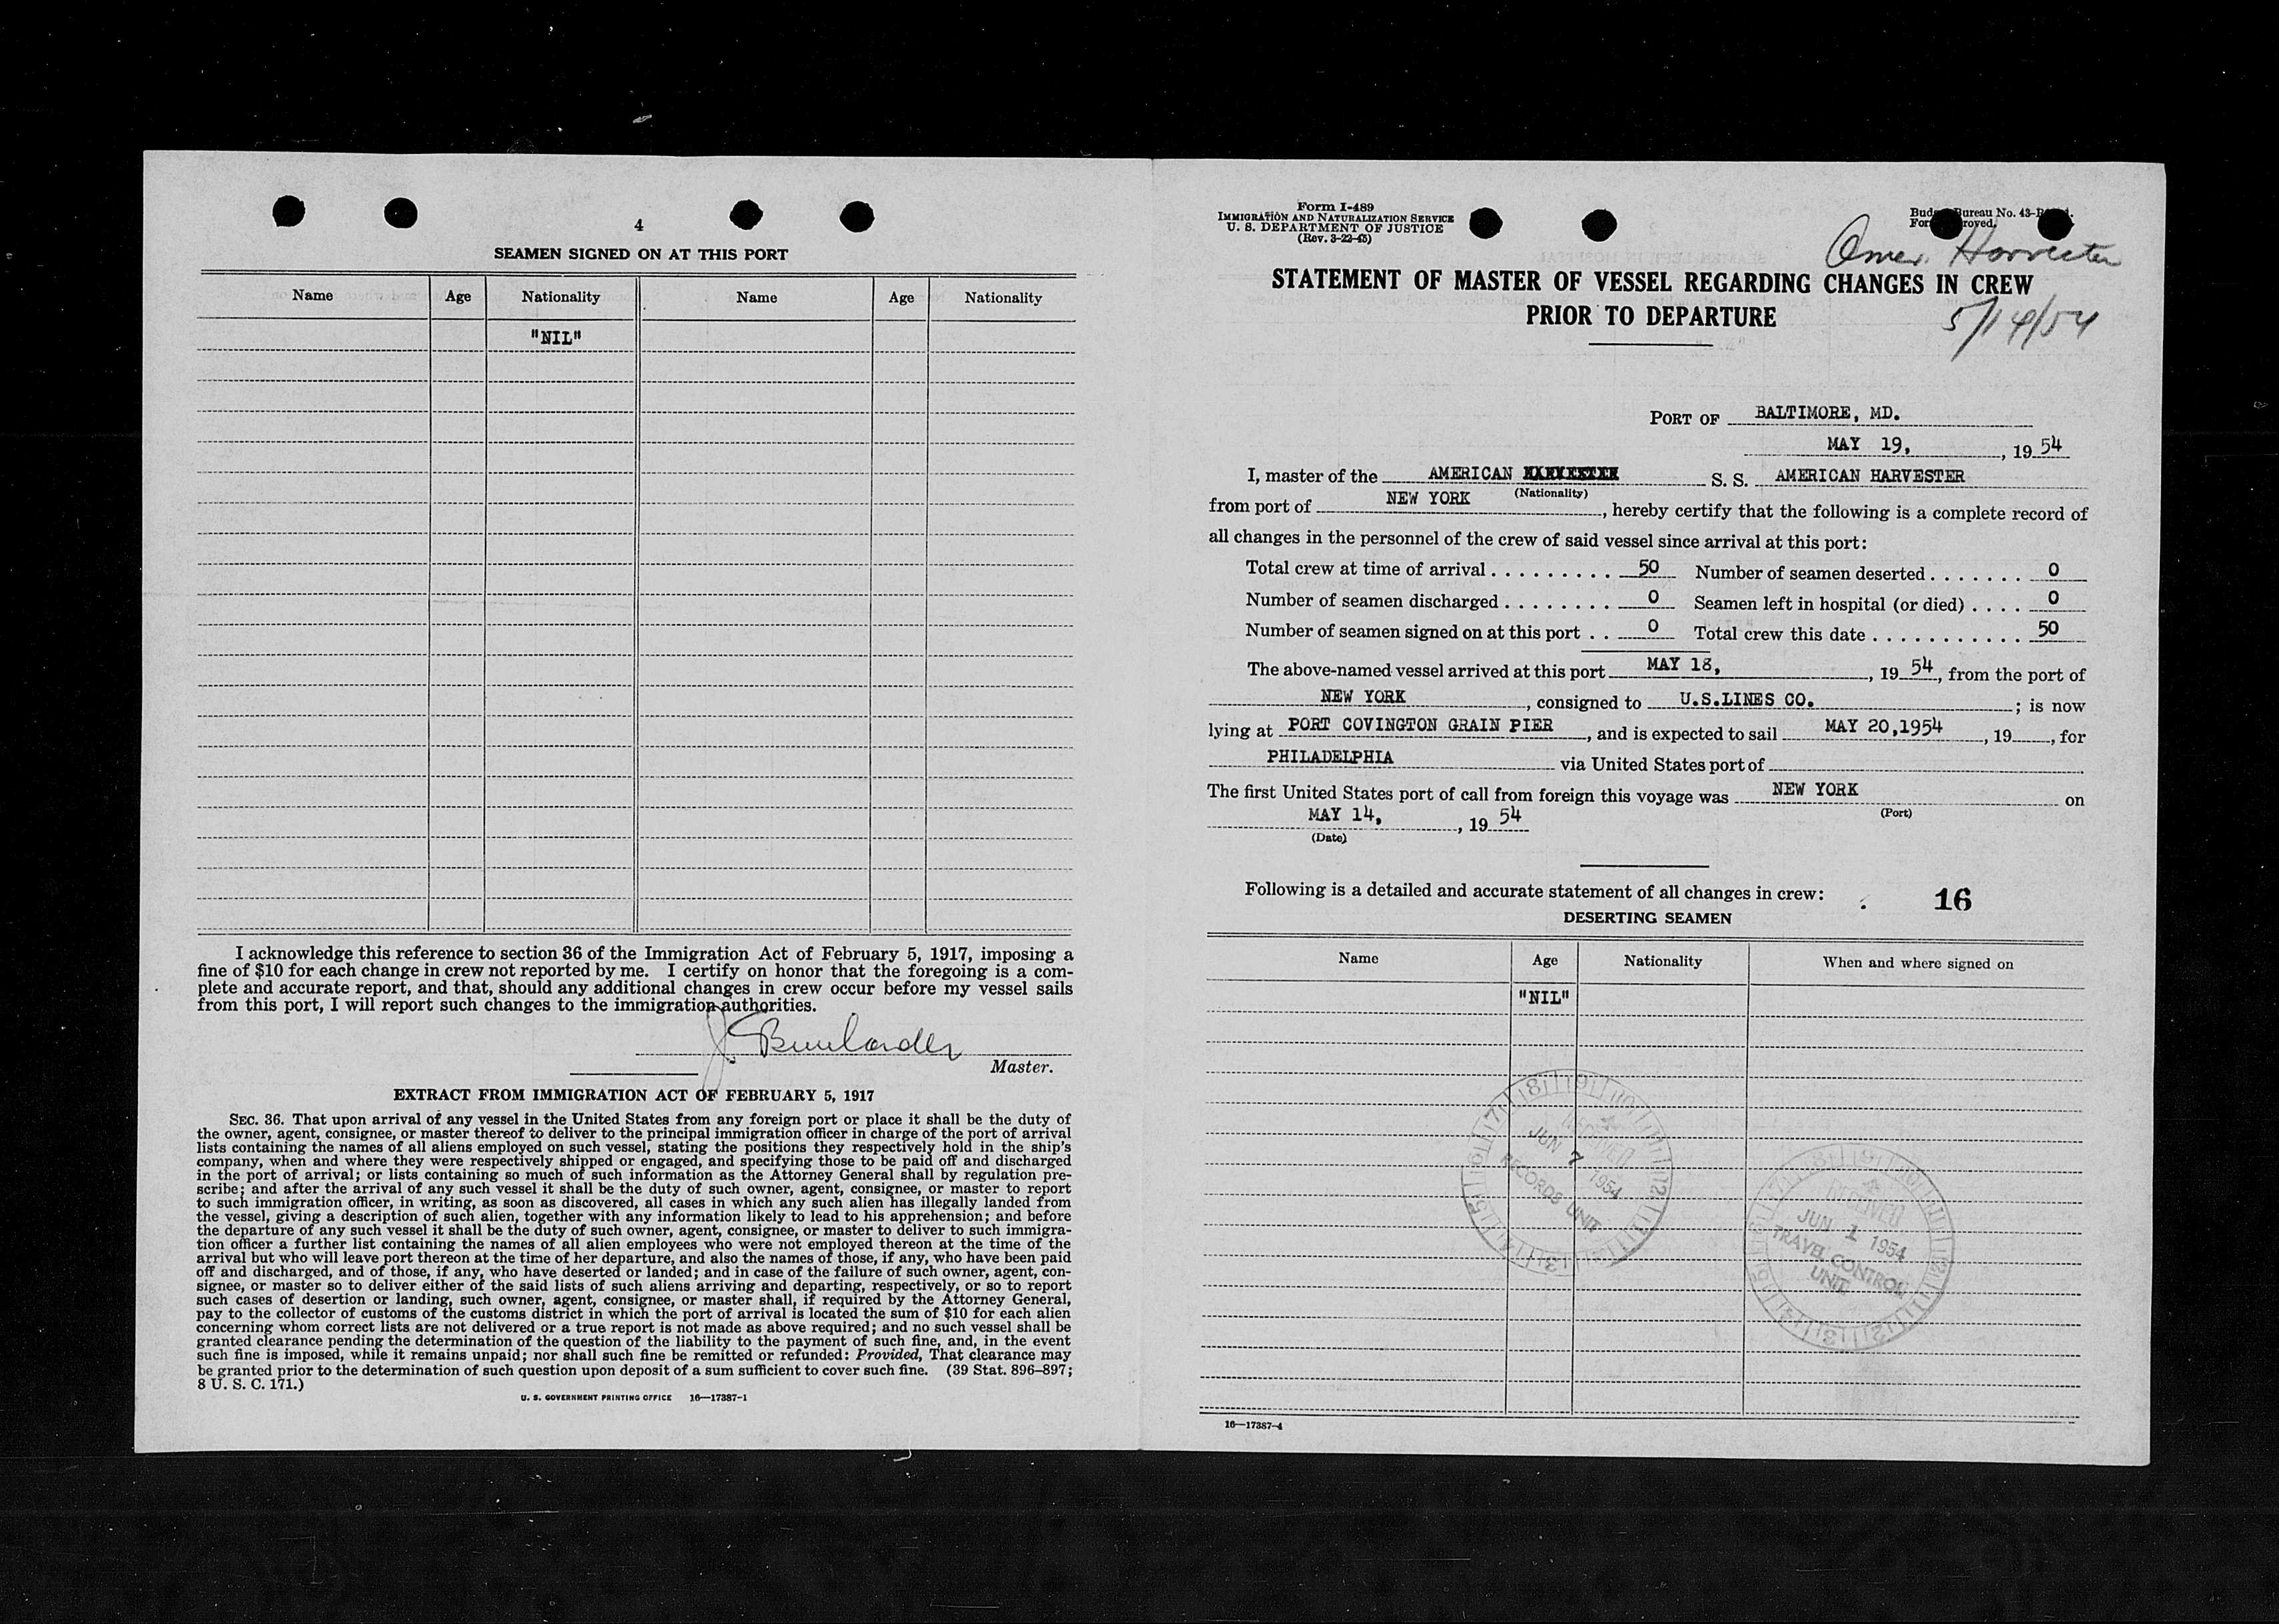 4
SEAMEN SIGNED ON AT THIS PORT
Name Age Nationality Name Age Nationality
"NIL"
I acknowledge this reference to section 36 of the Immigration Act of February 5, 1917, imposing a
fine of $10 for each change in crew not reported by me. I certify on honor that the foregoing is a com-
plete and accurate report, and that, should any additional changes in crew occur before my vessel sails
from this port, I will report such changes to the immigration authorities.
Master.
EXTRACT FROM IMMIGRATION ACT OF FEBRUARY 5, 1917
SEC. 36. That upon arrival of any vessel in the United States from any foreign port or place it shall be the duty of
the owner, agent, consignee, or master thereof to deliver to the principal immigration officer in charge of the port of arrival
lists containing the names of all aliens employed on such vessel, stating the positions they respectively hold in the ship's
company, when and where they were respectively shipped or engaged, and specifying those to be paid off and discharged
in the port of arrival; or lists containing so much of such information as the Attorney General shall by regulation pre-
scribe; and after the arrival of any such vessel it shall be the duty of such owner, agent, consignee, or master to report
to such immigration officer, in writing, as soon as discovered, all cases in which any such alien has illegally landed from
the vessel, giving a description of such alien, together with any information likely to lead to his apprehension; and before
the departure of any such vessel it shall be the duty of such owner, agent, consignee, or master to deliver to such immigra-
tion officer a further list containing the names of all alien employees who were not employed thereon at the time of the
arrival but who will leave port thereon at the time of her departure, and also the names of those, if any, who have been paid
off and discharged, and of those, if any, who have deserted or landed; and in case of the failure of such owner, agent, con-
signee, or master so to deliver either of the said lists of such aliens arriving and departing, respectively, or so to report
such cases of desertion or landing, such owner, agent, consignee, or master shall, if required by the Attorney General,
pay to the collector of customs of the customs district in which the port of arrival is located the sum of $10 for each alien
concerning whom correct lists are not delivered or a true report is not made as above required; and no such vessel shall be
granted clearance pending the determination of the question of the liability to the payment of such fine, and, in the event
such fine is imposed, while it remains unpaid; nor shall such fine be remitted or refunded: Provided, That clearance may
be granted prior to the determination of such question upon deposit of a sum sufficient to cover such fine. (39 Stat. 896–897;
8 U. S. C. 171.)
U. S. GOVERNMENT PRINTING OFFICE 16—17387-1
Form I-489
IMMIGRATION AND NATURALIZATION SERVICE
U. S. DEPARTMENT OF JUSTICE
(Rev. 3-22-45)
Bureau No. 43-
Amer. Harvester
STATEMENT OF MASTER OF VESSEL REGARDING CHANGES IN CREW
PRIOR TO DEPARTURE
5/14/54
PORT OF BALTIMORE, MD.
MAY 19, , 19 54
I, master of the AMERICAN S. S. AMERICAN HARVESTER
(Nationality)
from port of NEW YORK , hereby certify that the following is a complete record of
all changes in the personnel of the crew of said vessel since arrival at this port:
Total crew at time of arrival . . . . . . . . . . 50 Number of seamen deserted . . . . . . . 0
Number of seamen discharged . . . . . . . . 0 Seamen left in hospital (or died) . . . . 0
Number of seamen signed on at this port . . 0 Total crew this date . . . . . . . . . . . 50
The above-named vessel arrived at this port MAY 18, , 19 54, from the port of
NEW YORK , consigned to U.S.LINES CO. ; is now
lying at PORT COVINGTON GRAIN PIER , and is expected to sail MAY 20,1954 , 19 , for
PHILADELPHIA via United States port of
The first United States port of call from foreign this voyage was NEW YORK on
(Port)
MAY 14, , 19 54
(Date)
Following is a detailed and accurate statement of all changes in crew: 16
DESERTING SEAMEN
Name Age Nationality When and where signed on
"NIL"
RECEIVED
JUN 7 1954
RECORDS UNIT
RECEIVED
JUN 1 1954
TRAVEL CONTROL
UNIT
16—17387-4